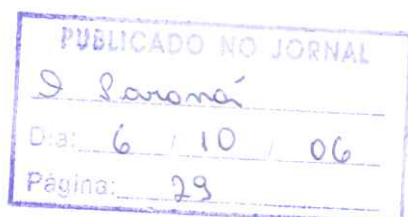 PUBLICADO NO JORNAL
O Paraná
Dia: 6 / 10 / 06
Página: 29